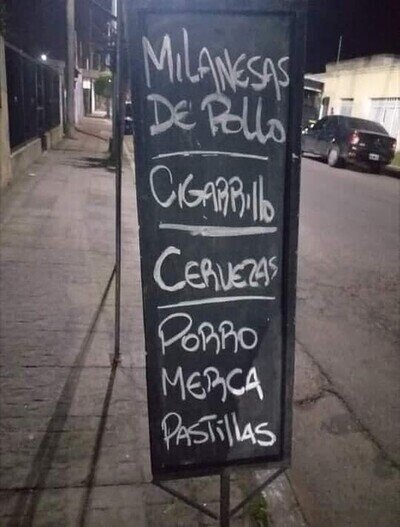 MILANESAS
DE POLLO
CIGARRILLO
CERVEZAS
PORRO
MERCA
PASTILLAS